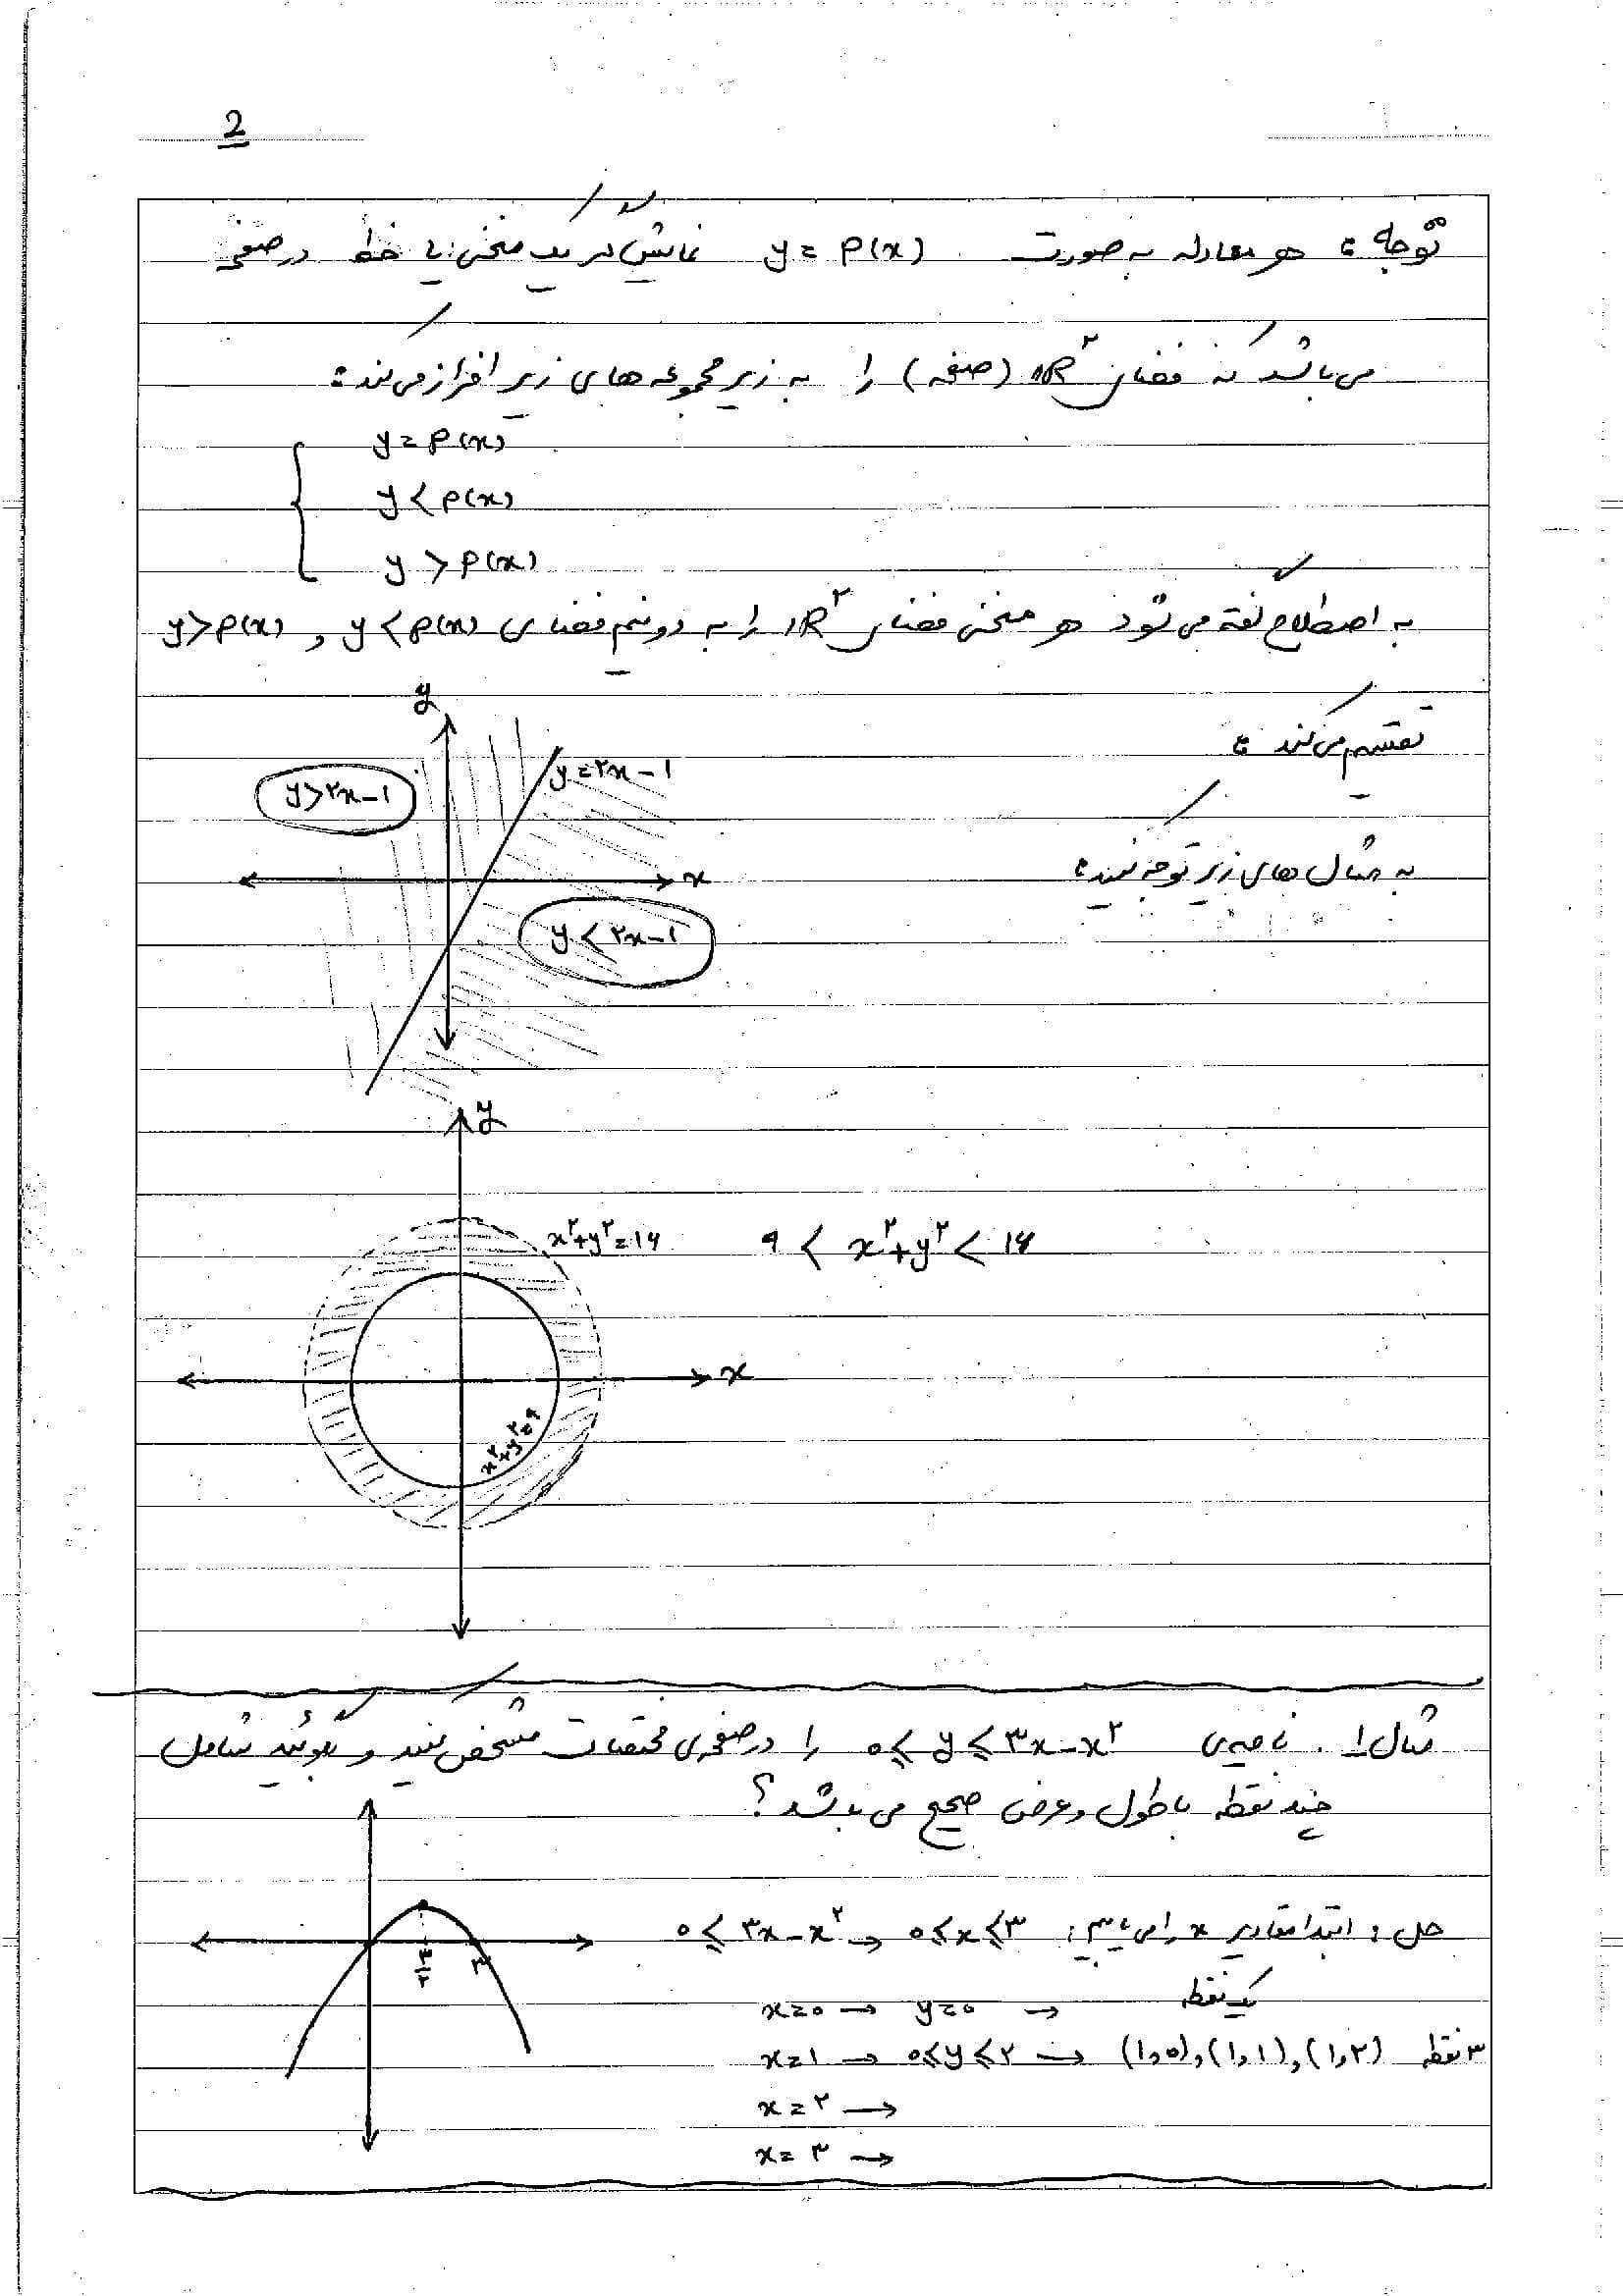 2
توجه: هر معادله به صورت y = P(x) نمایش‌گر یک منحنی یا خط در صفحه‌ی
می‌باشد که فضای ℝ^۲ (صفحه) را به زیر مجموعه های زیر افراز می‌کند:
y = P(x)
y < P(x)
y > P(x)
به اصطلاح گفته می شود هر منحنی فضای ℝ^۲ را به دو نیم فضای y < P(x) و y > P(x)
تقسیم می‌کند:
به مثال های زیر توجه کنید:
y
y = ۲x - ۱
y > ۲x - ۱
x
y < ۲x - ۱
y
x^۲ + y^۲ = ۱۶
۹ < x^۲ + y^۲ < ۱۶
x
x^۲ + y^۲ = ۹
مثال ۱. ناحیه‌ی ۰ ≤ y ≤ ۳x - x^۲ را در صفحه‌ی مختصات مشخص کنید و بگوئید شامل
چند نقطه با طول و عرض صحیح می باشد؟
حل: ابتدا مقادیر x را می یابیم: ۰ ≤ ۳x - x^۲ → ۰ ≤ x ≤ ۳
۳/۲
۳
x = ۰ → y = ۰ → یک نقطه
x = ۱ → ۰ ≤ y ≤ ۲ → (۱,۰), (۱,۱), (۱,۲) ۳ نقطه
x = ۲ →
x = ۳ →